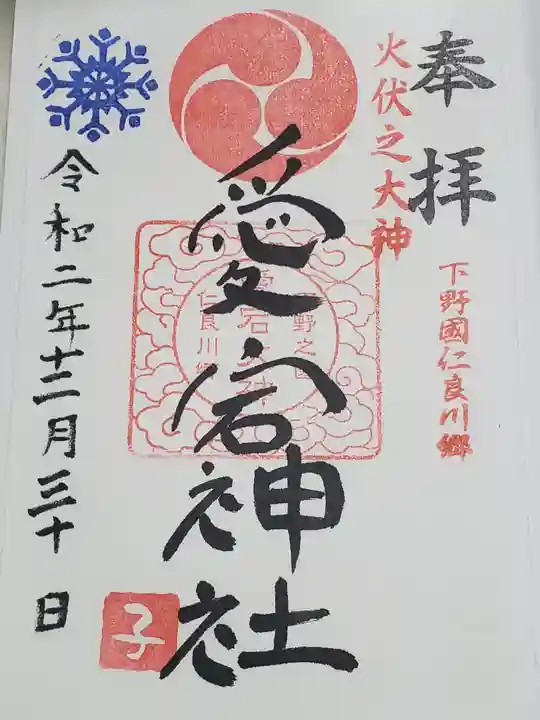 奉拝
火伏之大神
下野國仁良川郷
愛宕神社
子
令和二年十二月三十日